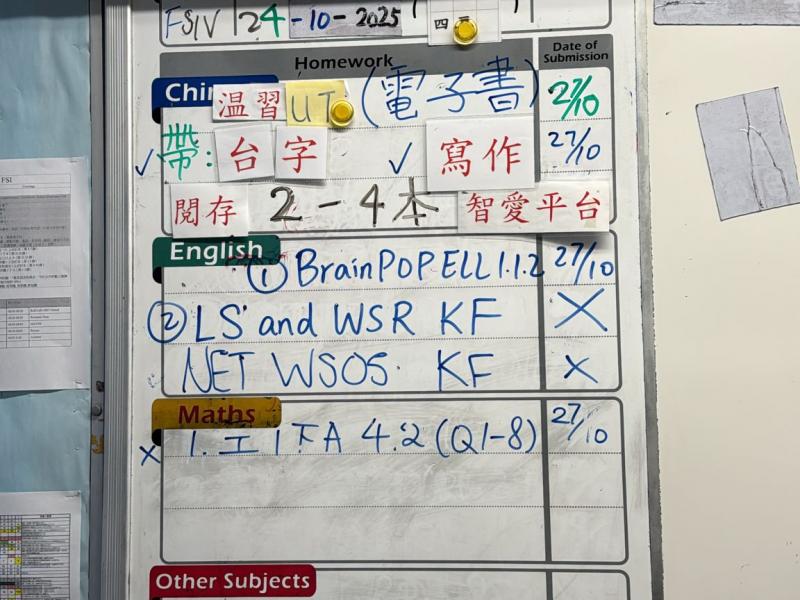 FSIV 24-10-2025 四
Homework Date of Submission
Chi 温習 UT (電子書) 27/10
✓ 帶: 台字 ✓ 寫作 27/10
閱存 2-4本 智愛平台
English
① BrainPOP ELL 1.1.2 27/10
② LS and WSR KF X
NET WSOS KF X
Maths
X 1. 工1下A 4.2 (Q1-8) 27/10
Other Subjects